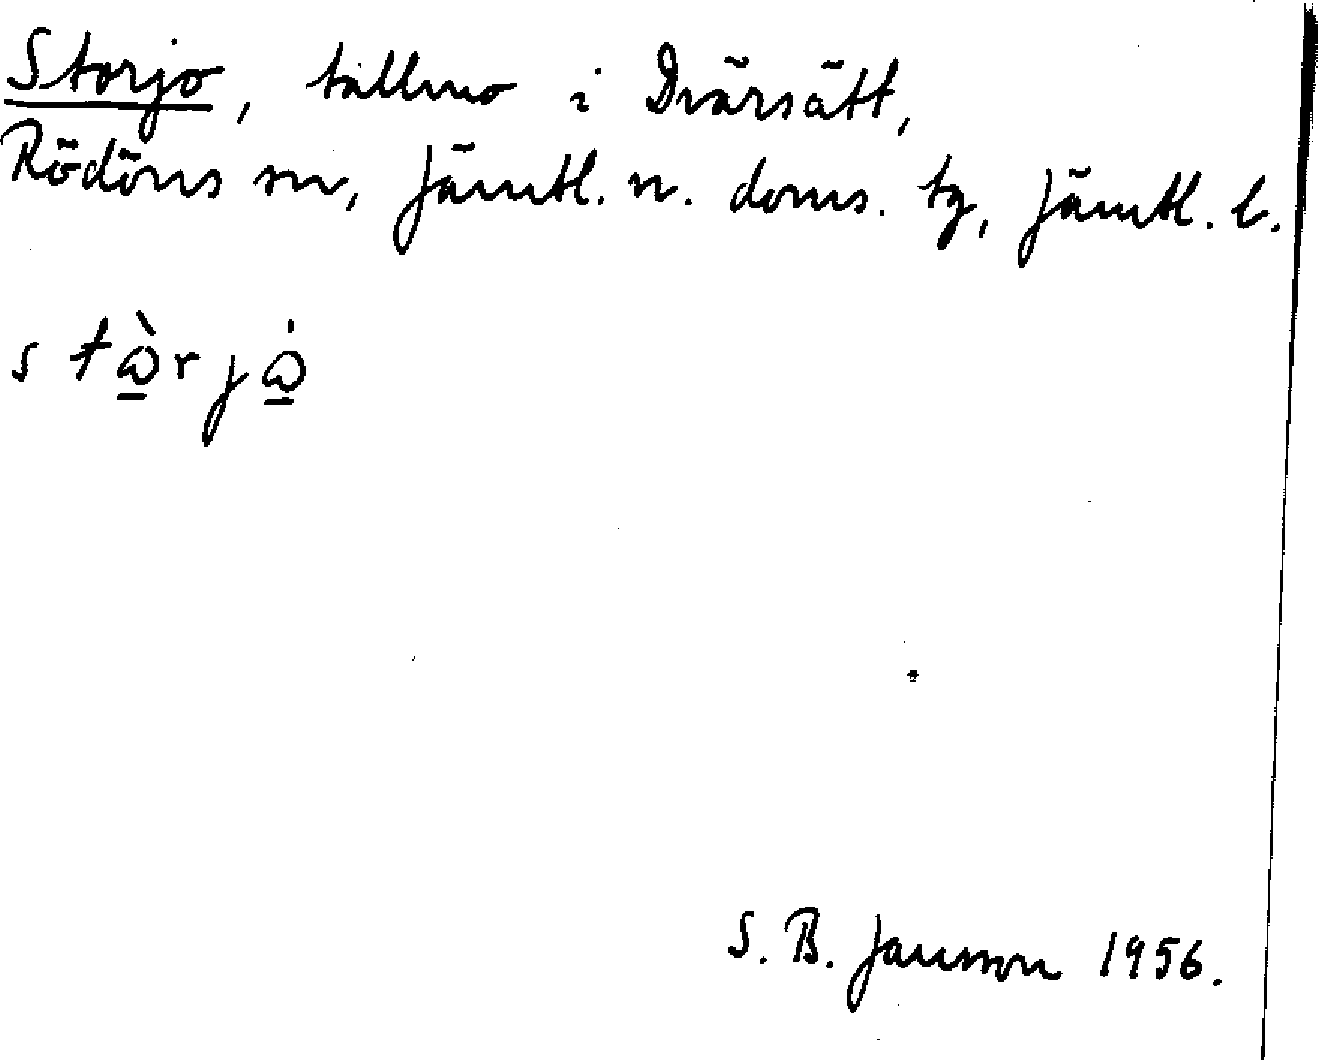 Storjo, tallmo i Dvärsätt,
Rödöns sn, Jämtl. n. doms. tg, Jämtl. l.
stὼ̲rjω̲̇
S. B. Jansson 1956.